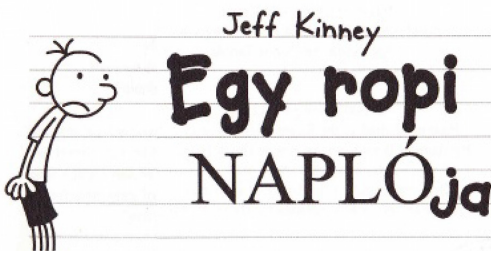 Jeff Kinney
Egy ropi
NAPLÓja